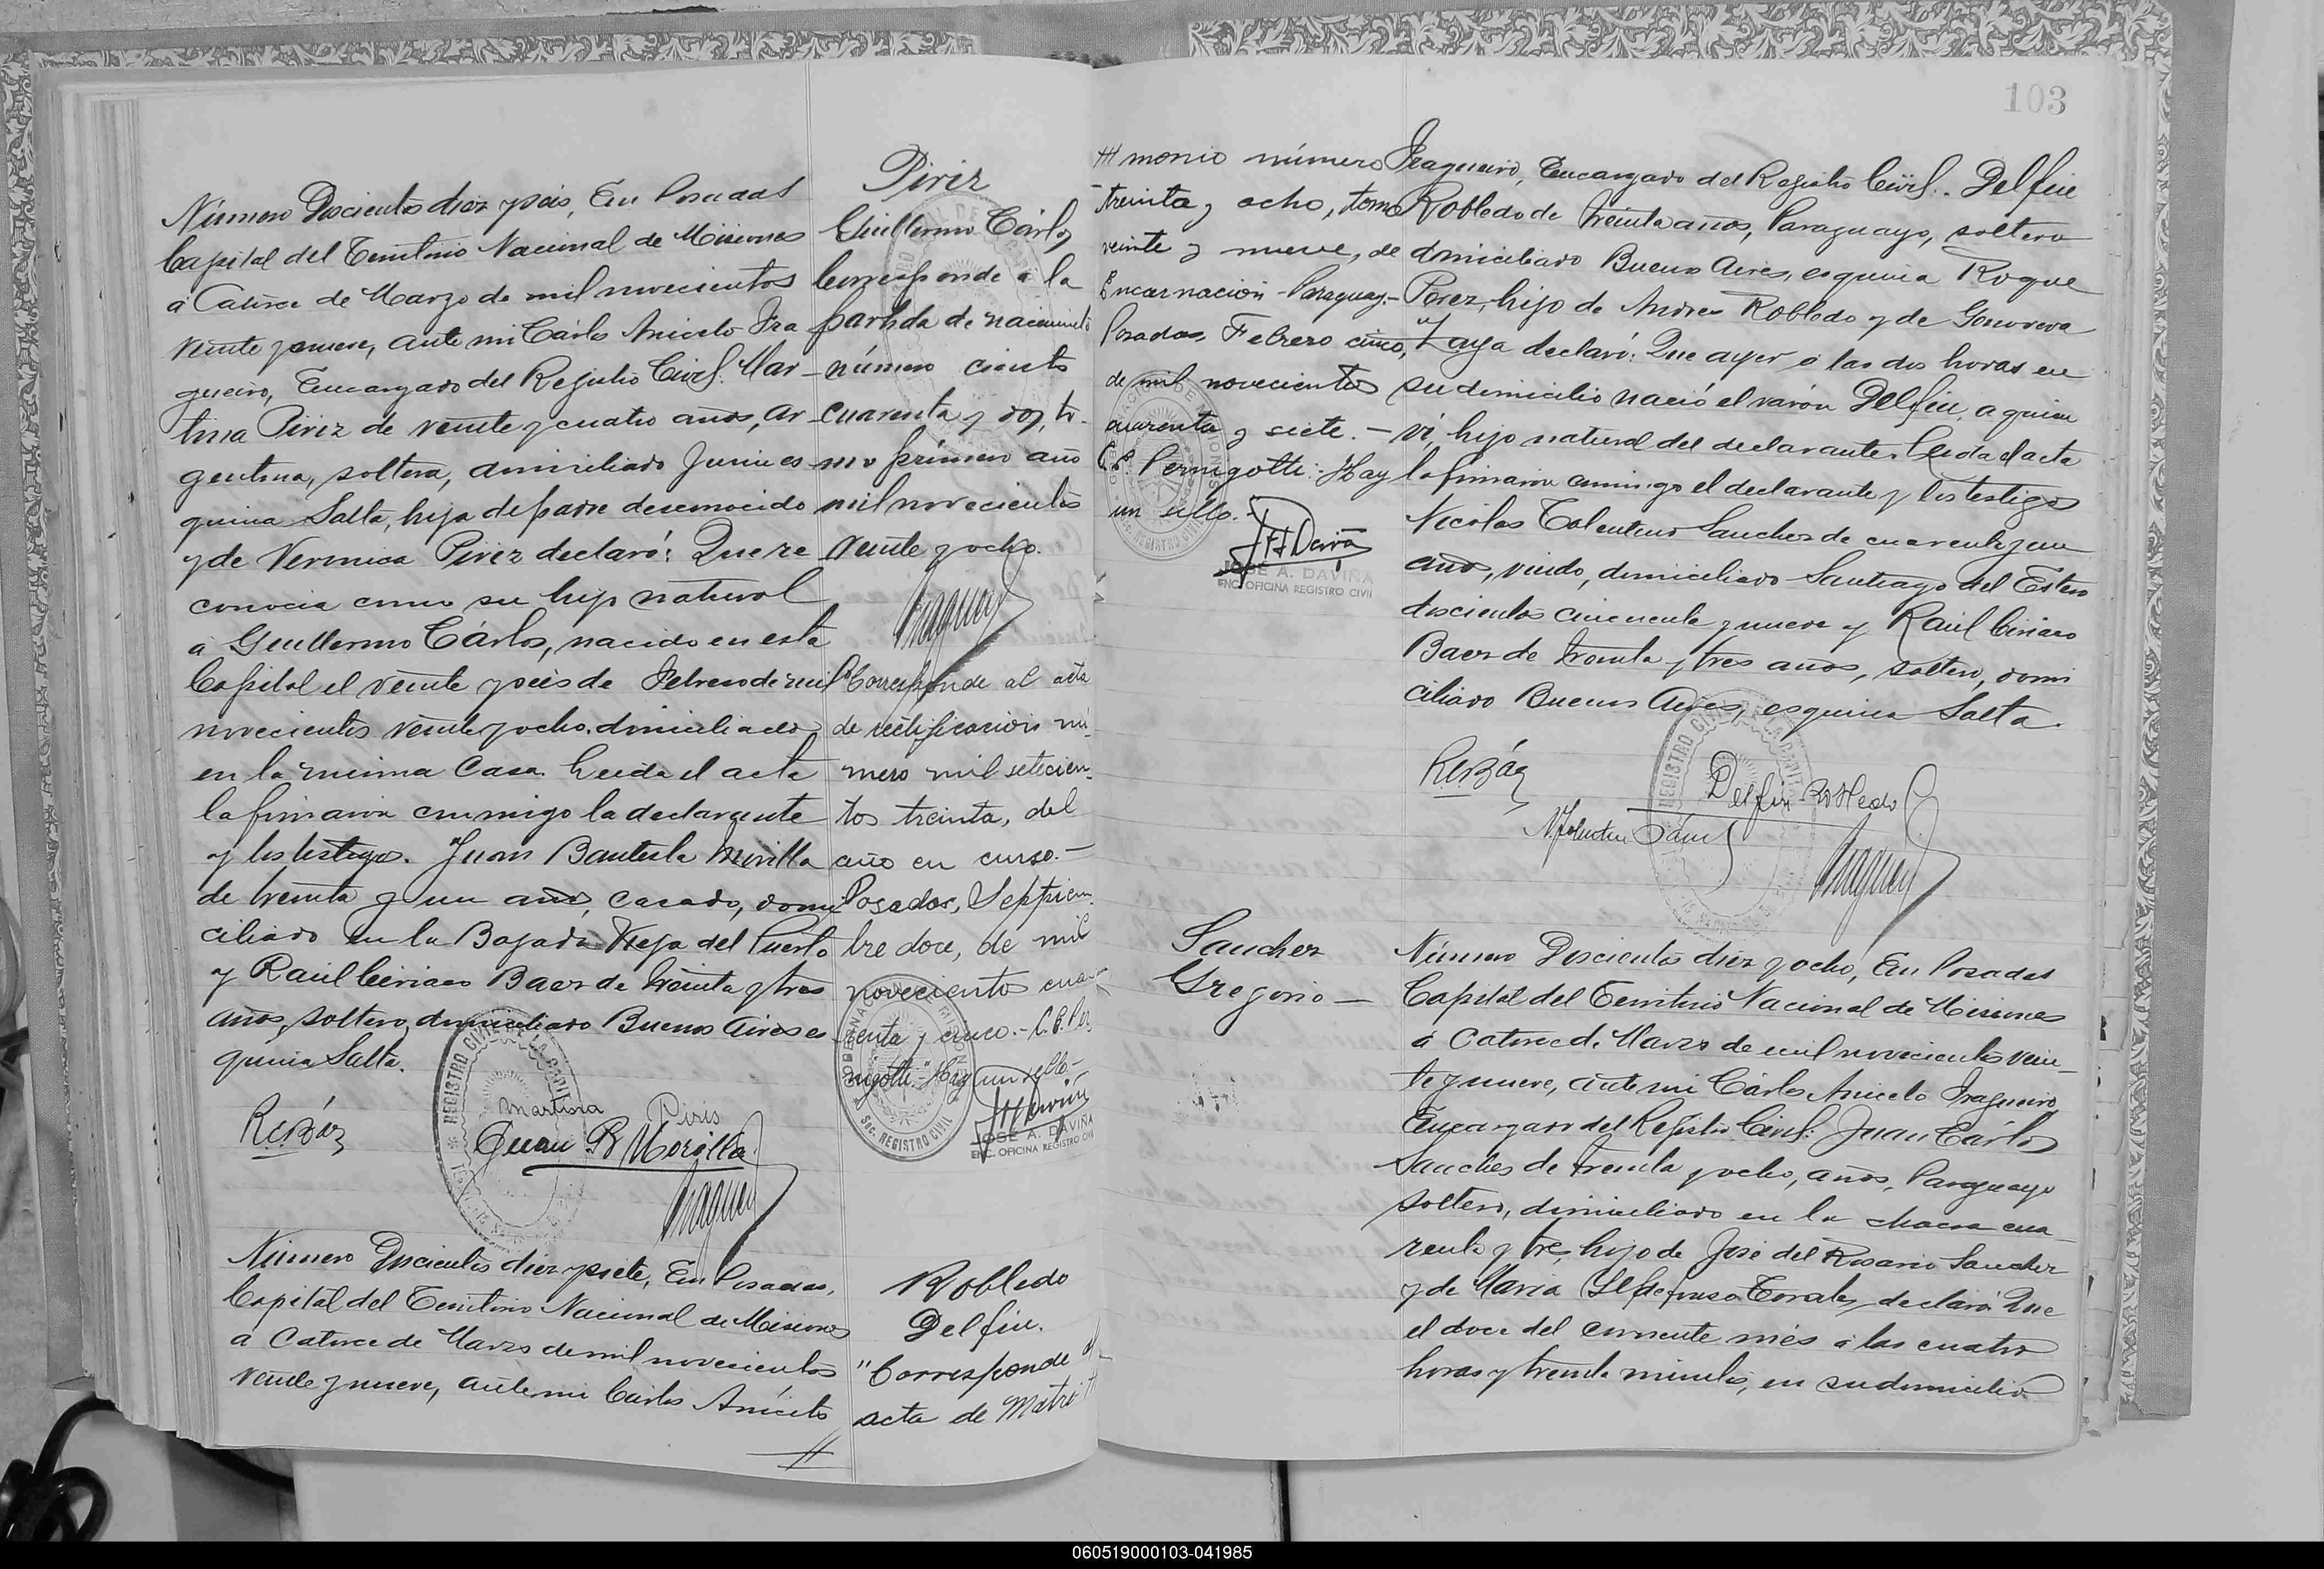 Número Doscientos diez y seis, En Posadas
Capital del Territorio Nacional de Misiones
á Catorce de Marzo de mil novecientos
veinte y nueve, ante mi Cárlos Aniceto Fra
gueiro, Encargado del Registro Civil: Mar
tina Piriz de veinte y cuatro años, ar
gentina, soltera, domiciliado Junin es
quina Salta, hija de padre desconocido
y de Veronica Piriz declaró: Que re
conocia como su hijo natural
a Guillermo Cárlos, nacido en esta
Capital el veinte y seis de Febrero de mil
novecientos veinte y ocho, domiciliado
en la misma Casa. Leida el acta
la firmaron conmigo la declarante
y los testigos. Juan Bautista Morilla
de treinta y un año, casado, domi
ciliado en la Bajada Vieja del Puerto
y Raúl Ciriaco Baez de treinta y tres
años, soltero, domiciliado Buenos Aires es
quina Salta.
RCBáez
Martina Piris
Juan B Morilla
Piriz
Guillermo Cárlos
Corresponde á la
partida de nacimiento
número ciento
cuarenta y dos, to-
mo primero año
mil novecientos
veinte y ocho.
"Corresponde al acta
de rectificación nú-
mero mil setecien-
tos treinta, del
año en curso.-
Posadas, Septiem-
bre doce, de mil
novecientos cua-
renta y cinco.- C. E. Per
nigotti." Hay un sello.-
JOSE A. DAVIÑA
ENC. OFICINA REGISTRO CIVIL
Número Doscientos diez y siete, En Posadas,
Capital del Territorio Nacional de Misiones
á Catorce de Marzo de mil novecientos
veinte y nueve, ante mi Cárlos Aniceto
Robledo
Delfin.
"Corresponde al
acta de Matri
103
monio número
treinta y ocho, tomo
veinte y nueve, de
Encarnación - Paraguay.-
Posadas, Febrero cinco,
de mil novecientos
cuarenta y siete.-
C. E. Pernigotti." Hay
un sello.-
JOSE A. DAVIÑA
ENC. OFICINA REGISTRO CIVIL
Fragueiro, Encargado del Registro Civil. Delfin
Robledo de treinta años, Paraguayo, soltero
domiciliado Buenos Aires, esquina Roque
Perez, hijo de Andres Robledo y de Genoveva
Zaya declaró: Que ayer á las dos horas en
su domicilio nació el varón Delfin, a quien
ví, hijo natural del declarante. Leida el acta
la firmaron conmigo el declarante y los testigos
Nicolas Tolentino Sanchez de cuarenta y un
años, viudo, domiciliado Santiago del Estero
doscientos cincuenta y nueve y Raúl Ciriaco
Baez de treinta y tres años, soltero, domi
ciliado Buenos Aires, esquina Salta.
RCBáez
Delfin Robledo
Sanchez
Gregorio
Número Doscientos diez y ocho, En Posadas
Capital del Territorio Nacional de Misiones
á Catorce de Marzo de mil novecientos vein-
te y nueve, ante mi Cárlos Aniceto Fragueiro,
Encargado del Registro Civil: Juan Cárlos
Sanches de treinta y ocho, años, Paraguayo
soltero, domiciliado en la chacra cua-
renta y tres, hijo de José del Rosario Sanchez
y de Maria Ildefonsa Torales, declaró: Que
el doce del corriente més á las cuatro
horas y treinta minutos, en su domicilio
060519000103-041985